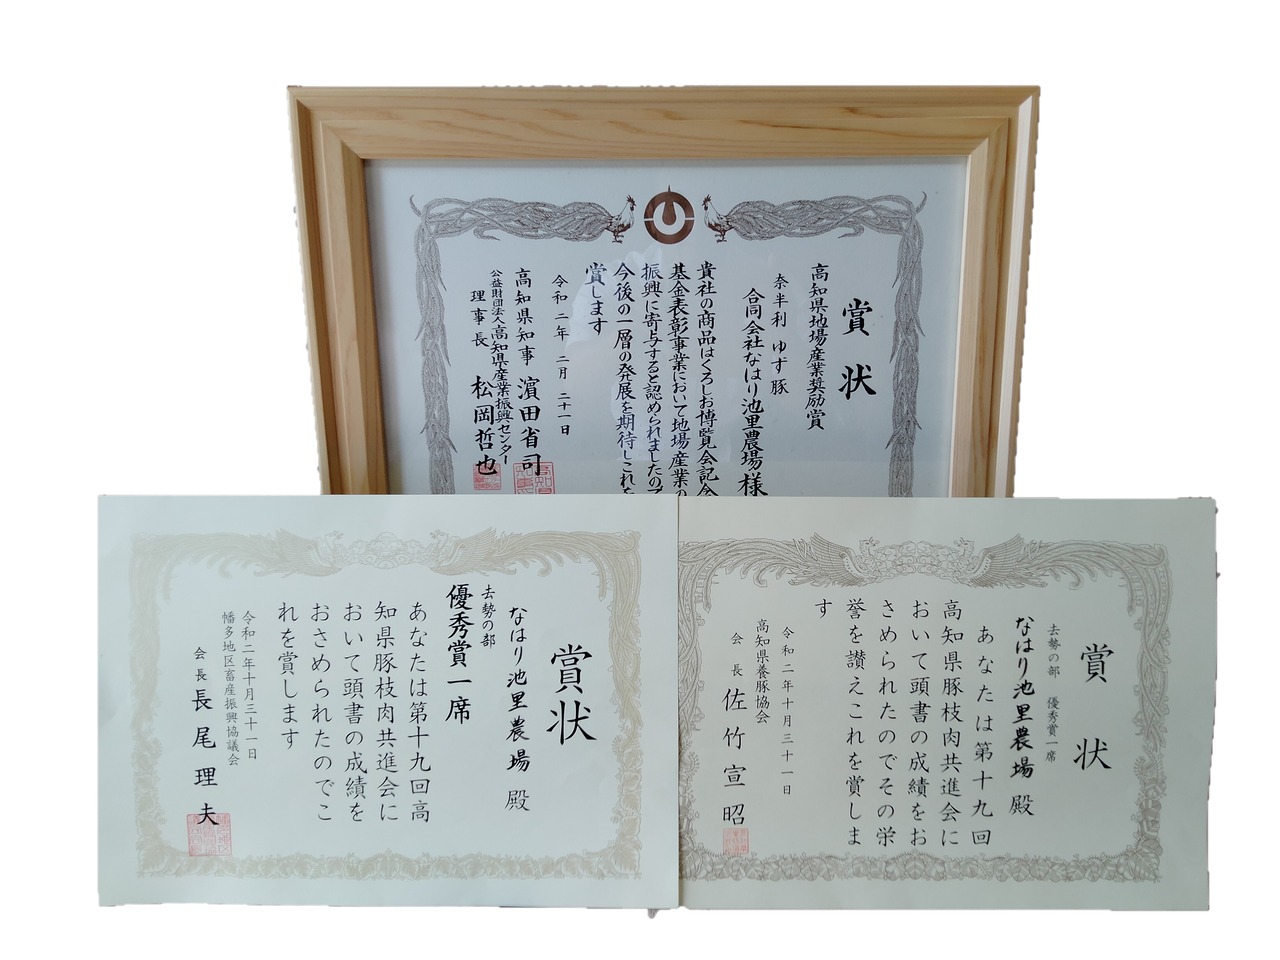 賞状
高知県地場産業奨励賞
奈半利 ゆず豚
合同会社なはり池里農場様
貴社の商品はくろしお博覧会記念
基金表彰事業において地場産業の
振興に寄与すると認められましたので
今後の一層の発展を期待しこれを
賞します
令和二年 二月 二十一日
高知県知事 濵田省司
公益財団法人高知県産業振興センター
理事長 松岡哲也
賞状
なはり池里農場 殿
去勢の部
優秀賞一席
あなたは第十九回高
知県豚枝肉共進会に
おいて頭書の成績を
おさめられたのでこ
れを賞します
令和二年十月三十一日
幡多地区畜産振興協議会
会長 長尾理夫
賞状
去勢の部 優秀賞一席
なはり池里農場 殿
あなたは第十九回
高知県豚枝肉共進会に
おいて頭書の成績をお
さめられたのでその栄
誉を讃えこれを賞しま
す
令和二年十月三十一日
高知県養豚協会
会長 佐竹宣昭